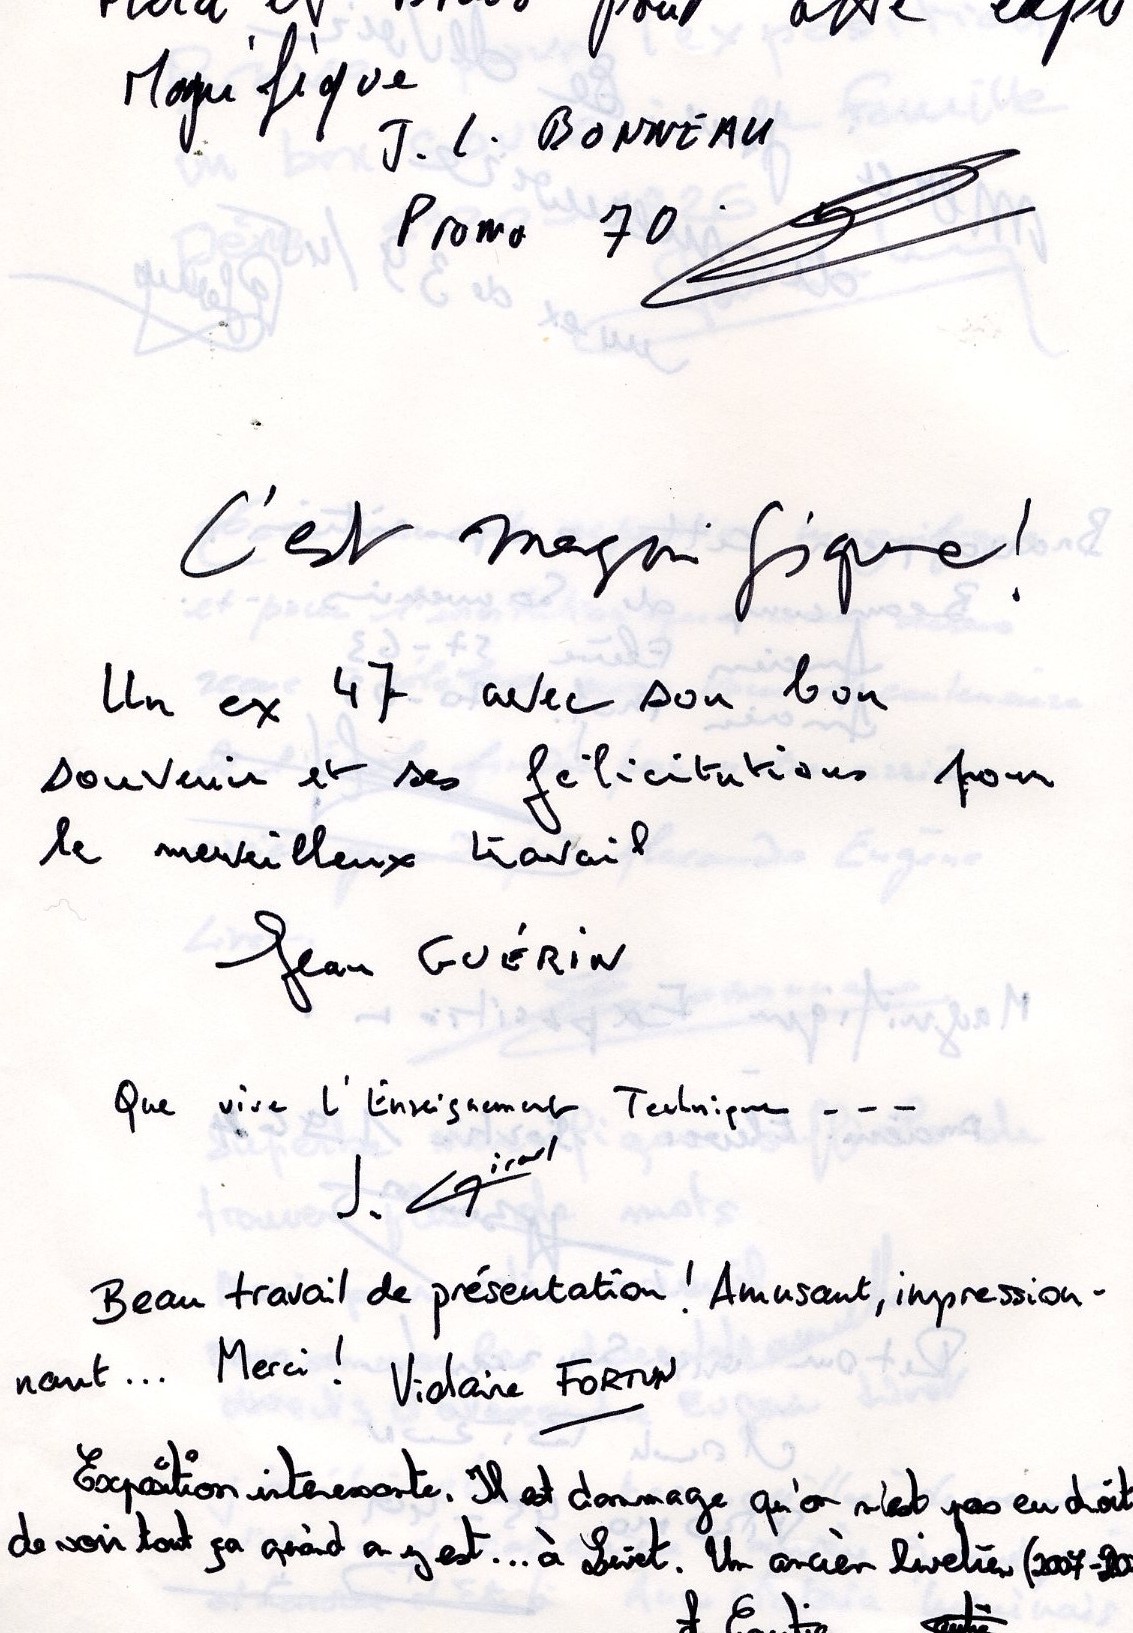 et pour cette expo
Magnifique
J. L. BONNEAU
Promo 70
C'est magnifique!
Un ex 47 avec son bon
souvenir et ses félicitations pour
le merveilleux travail
Jean GUÉRIN
Que vive l'Enseignement Technique ---
J. Girard
Beau travail de présentation ! Amusant, impression-
nant... Merci ! Violaine FORTUN
Exposition interessante. Il est dommage qu'on n'est pas eu droit
de voir tout ça quand on y est... à Livet. Un ancien livetien (2007-